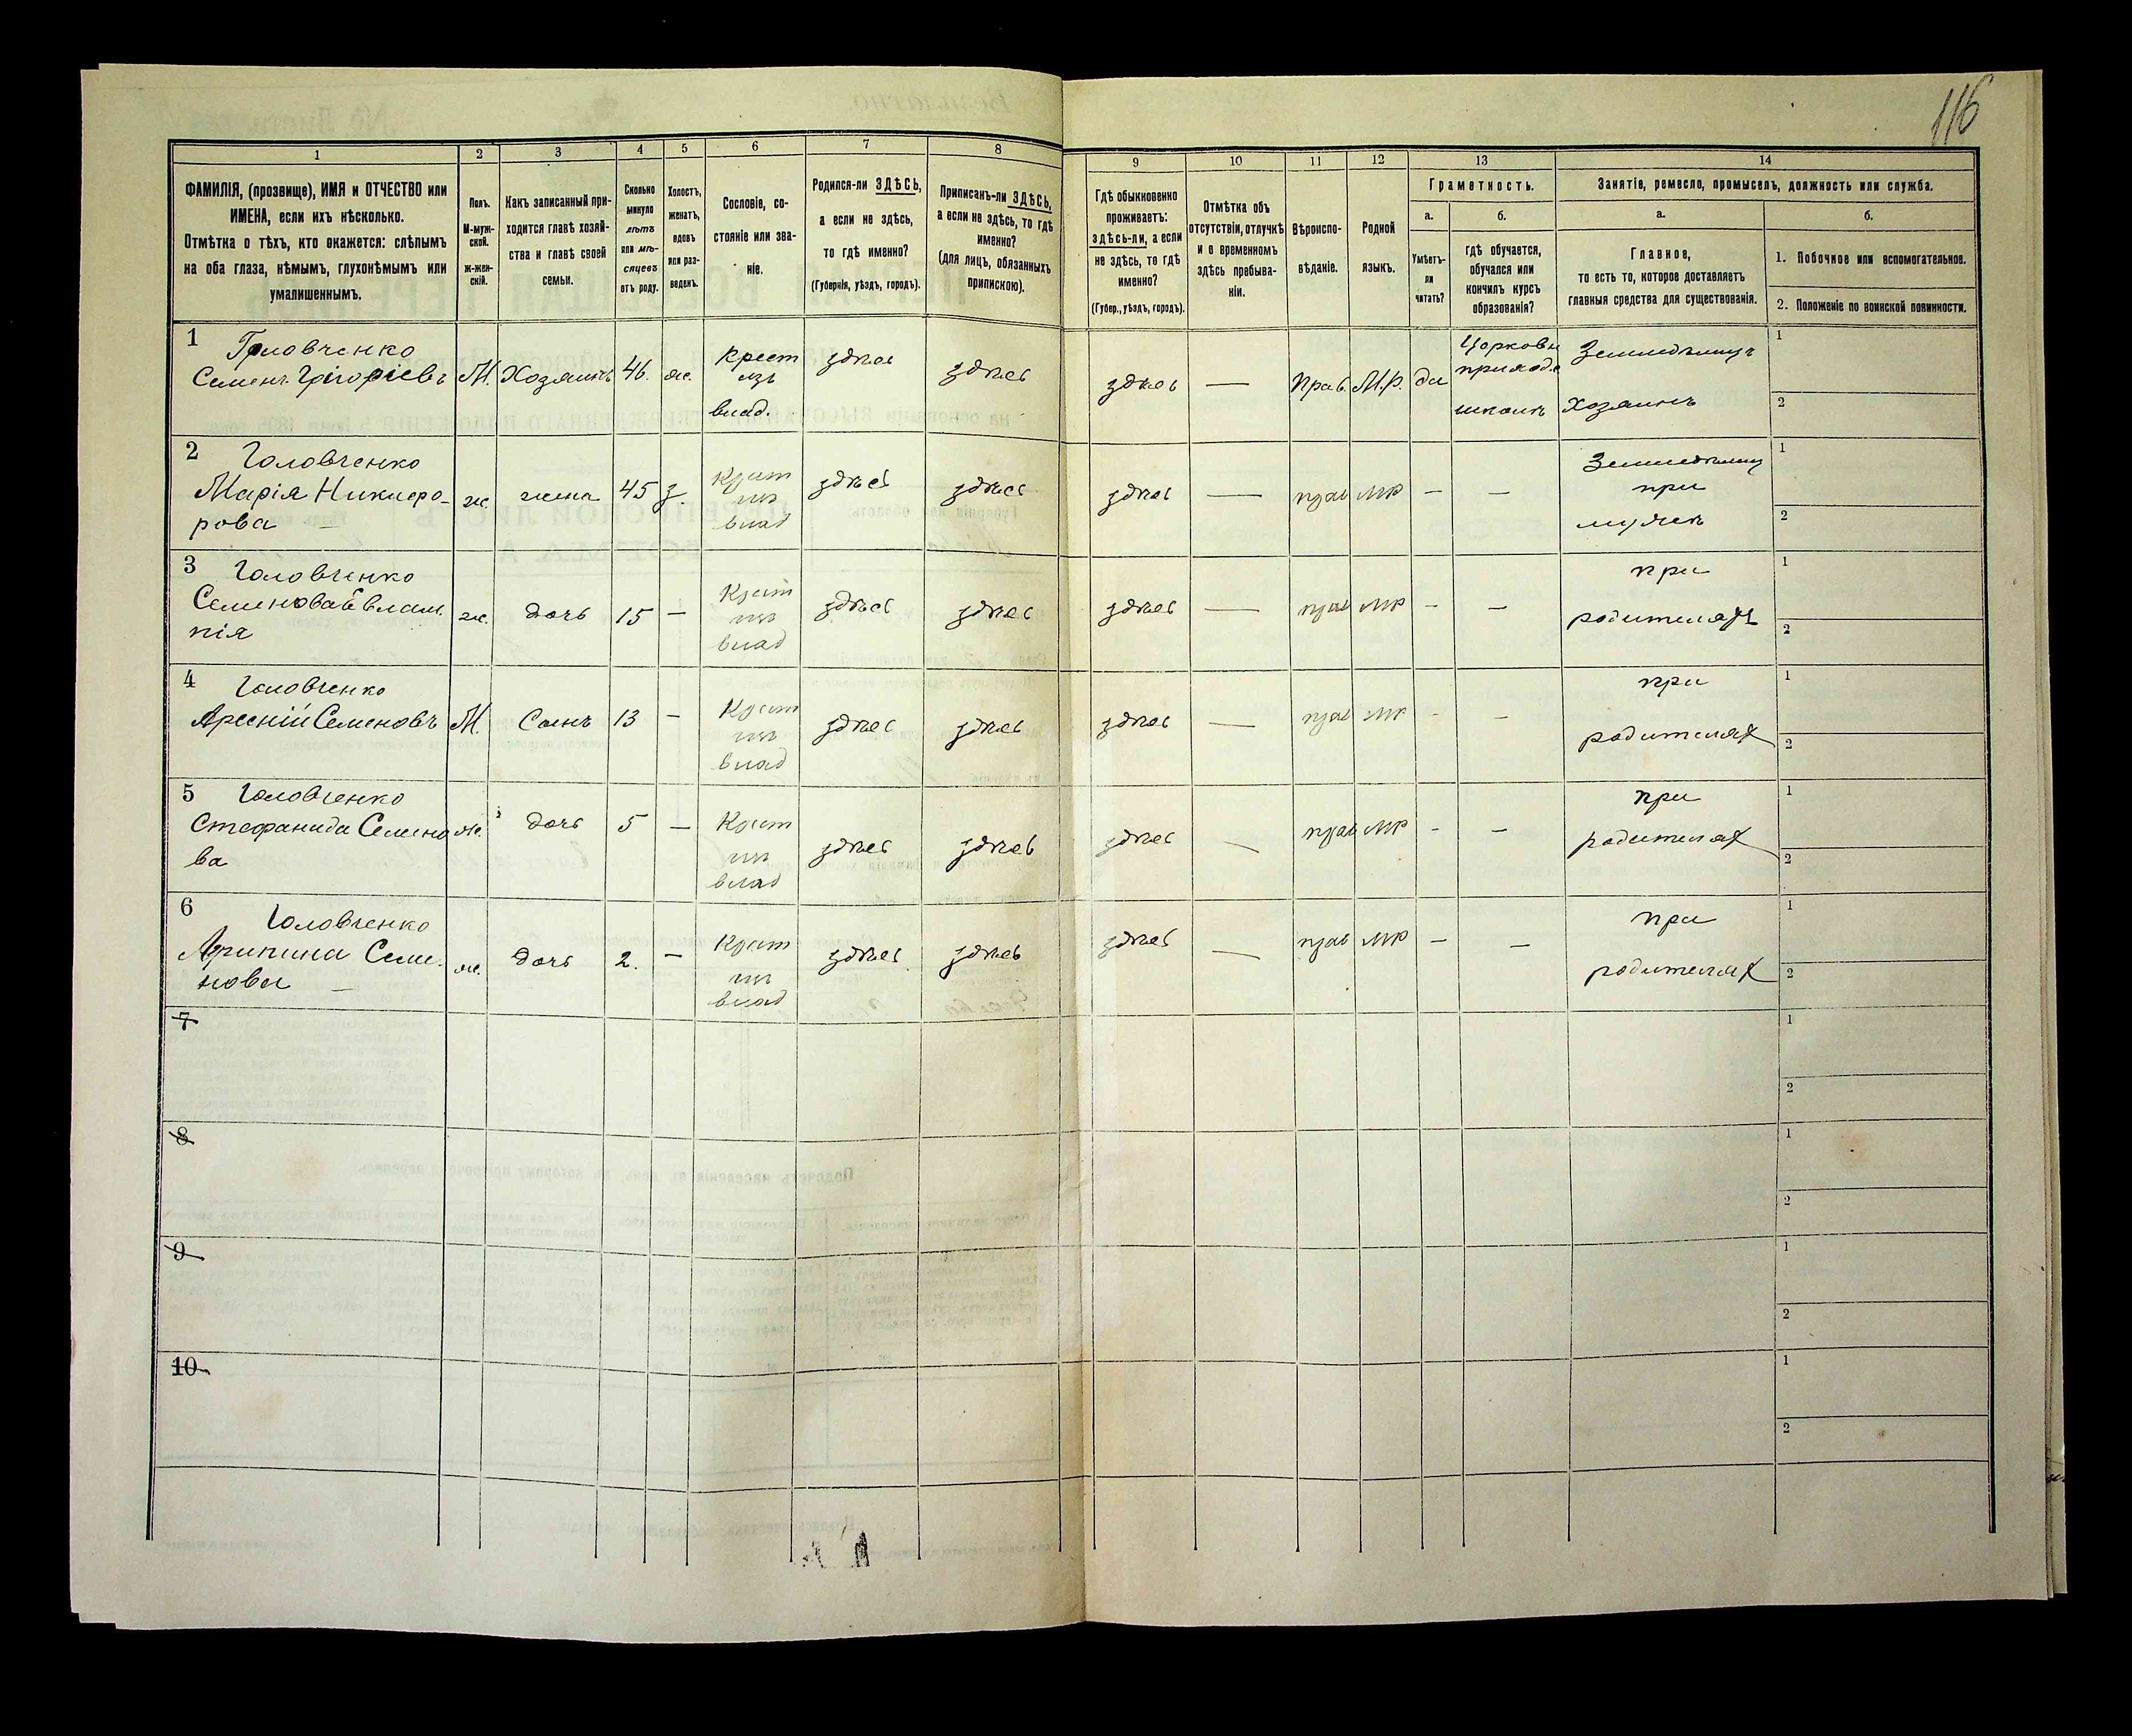 116
1 2 3 4 5 6 7 8 9 10 11 12 13 14
ФАМИЛІЯ, (прозвище), ИМЯ и ОТЧЕСТВО или
ИМЕНА, если ихъ нѣсколько.
Отмѣтка о тѣхъ, кто окажется: слѣпымъ
на оба глаза, нѣмымъ, глухонѣмымъ или
умалишеннымъ.
Полъ.
М-муж-
ской.
ж-жен-
скій.
Какъ записанный при-
ходится главѣ хозяй-
ства и главѣ своей
семьи.
Сколько
минуло
лѣтъ
или мѣ-
сяцевъ
отъ роду.
Холостъ,
женатъ,
вдовъ
или раз-
веденъ.
Сословіе, со-
стояніе или зва-
ніе.
Родился-ли ЗДѢСЬ,
а если не здѣсь,
то гдѣ именно?
(Губернія, уѣздъ, городъ).
Приписанъ-ли ЗДѢСЬ,
а если не здѣсь, то гдѣ
именно?
(для лицъ, обязанныхъ
припискою).
Гдѣ обыкновенно
проживаетъ:
здѣсь-ли, а если
не здѣсь, то гдѣ
именно?
(Губер., уѣздъ, городъ).
Отмѣтка объ
отсутствіи, отлучкѣ
и о временномъ
здѣсь пребыва-
ніи.
Вѣроиспо-
вѣданіе.
Родной
языкъ.
Грамотность.
а.
Умѣетъ-
ли
читать?
б.
гдѣ обучается,
обучался или
кончилъ курсъ
образованія?
Занятіе, ремесло, промыселъ, должность или служба.
а.
Главное,
то есть то, которое доставляетъ
главныя средства для существованія.
б.
1. Побочное или вспомогательное.
2. Положеніе по воинской повинности.
1 Головченко
Семенъ Григоріевъ М. Хозяинъ 46. ж. Крест изъ влад. здѣсь здѣсь здѣсь — Прав. М.Р. да Церковн приход. школѣ Земледѣлецъ Хозяинъ 1 2
2 Головченко
Марія Никифо-
рова — ж. жена 45 з. Крест изъ влад здѣсь здѣсь здѣсь — прав МР — — Земледѣлец при мужѣ 1 2
3 Головченко
Семенова Евлам-
пія ж. дочь 15 — Крест изъ влад здѣсь здѣсь здѣсь — прав МР — — при родителяхъ 1 2
4 Головченко
Арсеній Семеновъ М. Сынъ 13 — Крест изъ влад здѣсь здѣсь здѣсь — прав МР — — при родителях 1 2
5 Головченко
Стефанида Семено
ва ж. дочь 5 — Крест изъ влад здѣсь здѣсь здѣсь — прав МР — — при родителях 1 2
6 Головченко
Агрипина Семе-
нова — ж. дочь 2. — Крест изъ влад здѣсь здѣсь здѣсь — прав МР — — при родителях 1 2
7 1 2
8 1 2
9 1 2
10 1 2